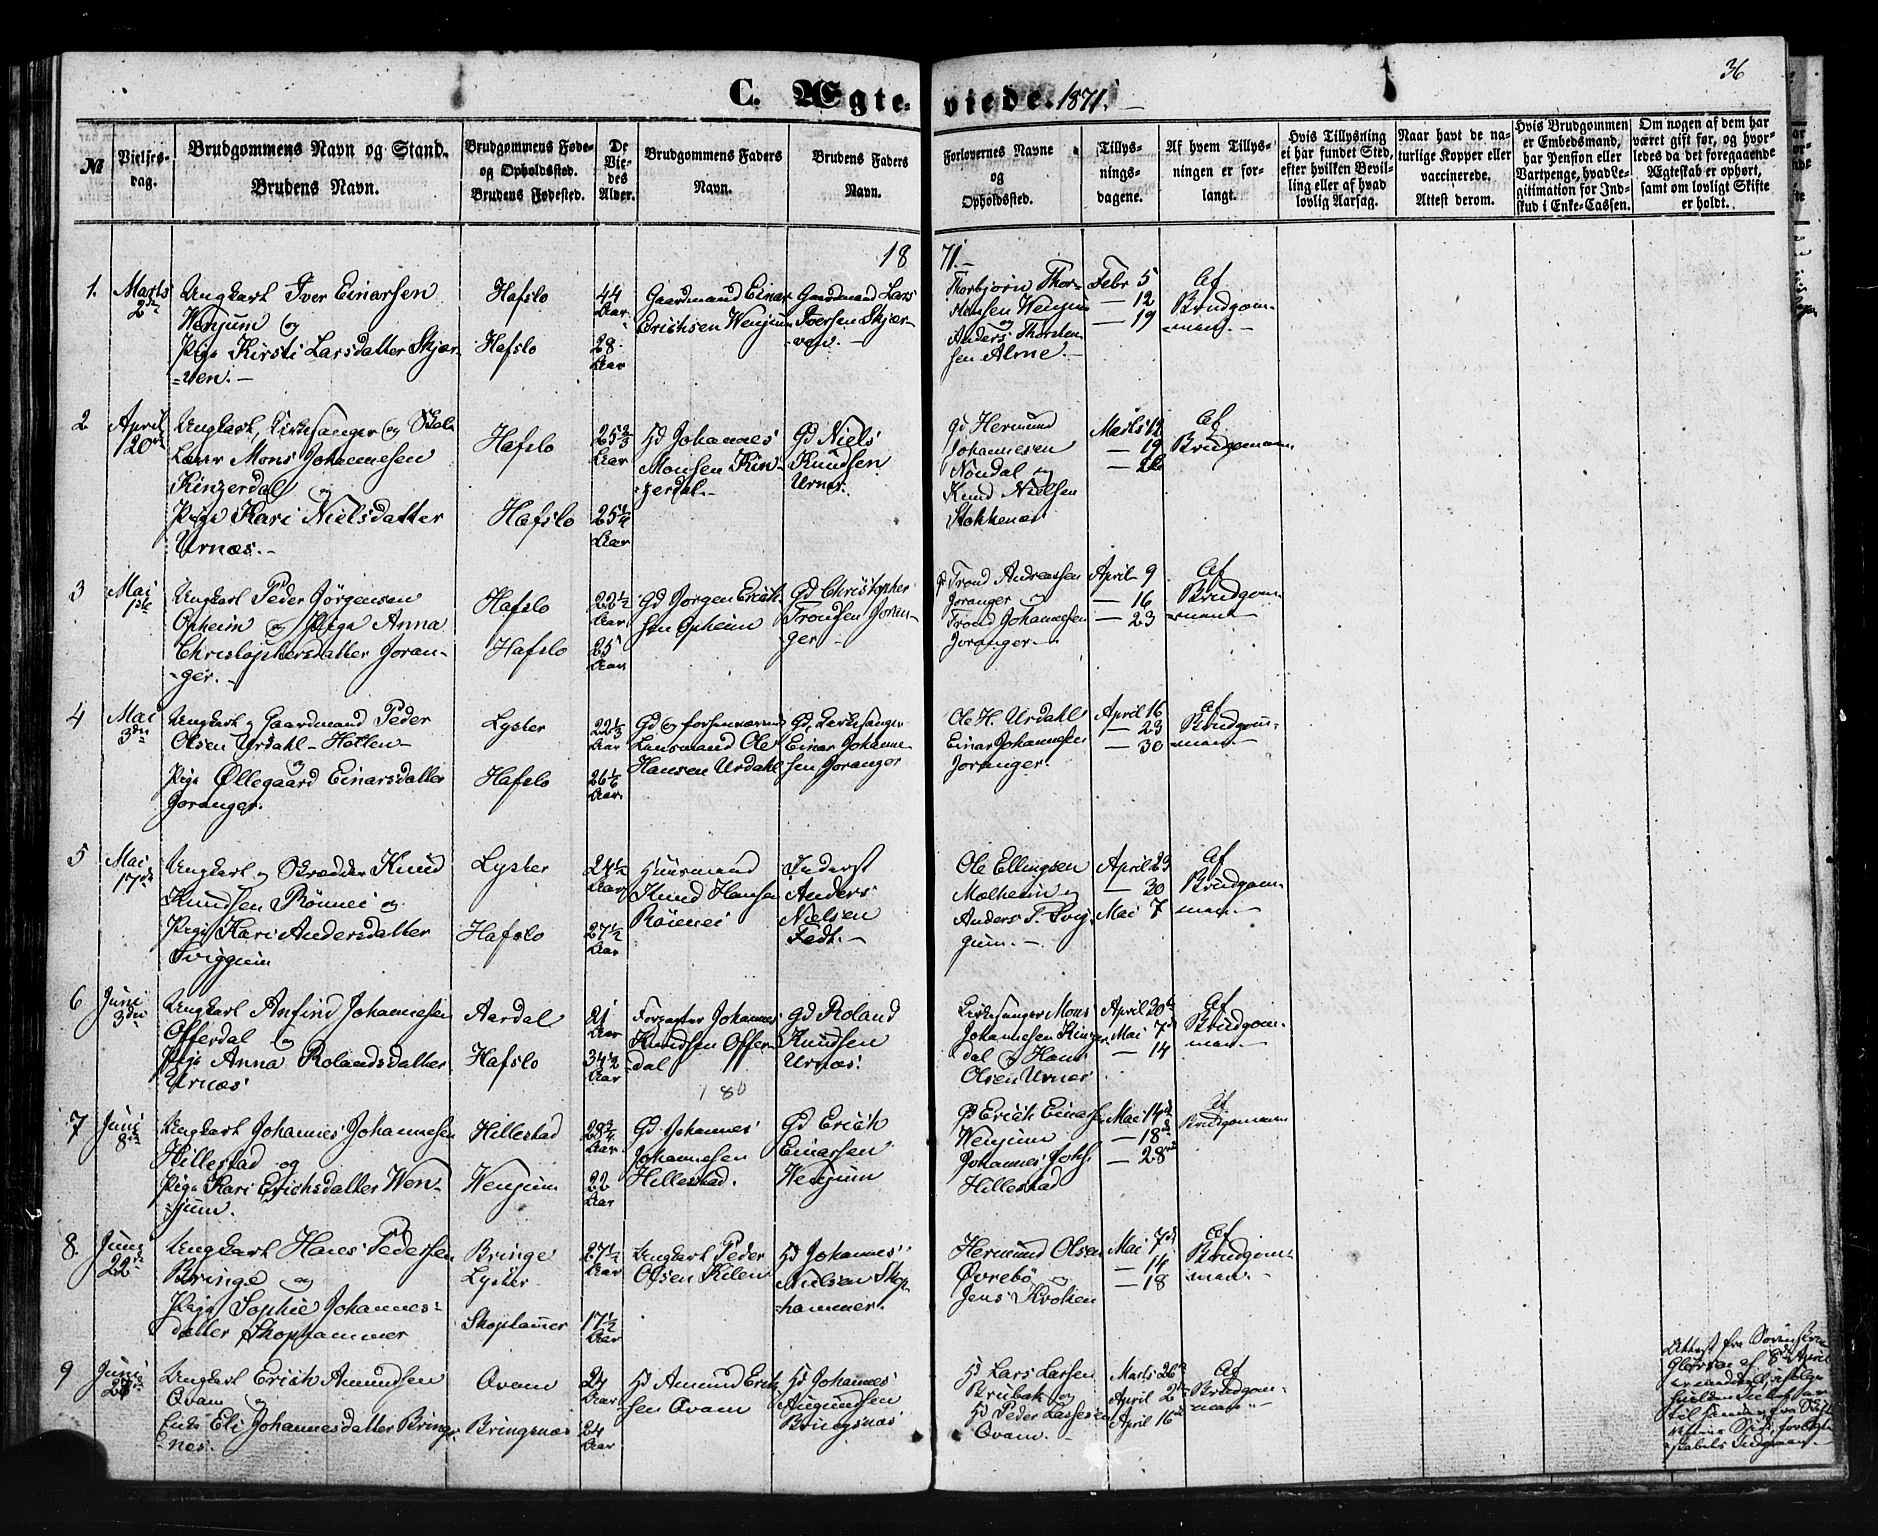 36
C. Ægteviede. 1871.
№
Vielsesdag.
Brudgommens Navn og Stand.
Brudens Navn.
Brudgommens Føde-
og Opholdssted.
Brudens Fødested.
De
Vie-
des
Alder.
Brudgommens Faders
Navn.
Brudens Faders
Navn.
Forlovernes Navne
og
Opholdssted.
Tillys-
nings-
dagene.
Af hvem Tillys-
ningen er for-
langt.
Hvis Tillysning
ei har fundet Sted,
efter hvilken Bevil-
ling eller af hvad
lovlig Aarsag.
Naar havt de na-
turlige Kopper eller
vaccinerede.
Attest derom.
Hvis Brudgommen
er Embedsmand,
har Pension eller
Vartpenge, hvad Le-
gitimation for Ind-
skud i Enke-Cassen.
Om nogen af dem har
været gift før, og hvor-
ledes da det foregaaende
Ægteskab er ophørt,
samt om lovligt Skifte
er holdt.
1871.-
1.
Marts
2de
Ungkarl Iver Einarsen
Wenjum og
Pige Kirsti Larsdatter Skjær-
=ven.-
Hafslo
Hafslo
44
Aar
28
Aar
Gaardmand Einar
Erichsen Wenjum
Gaardmand Lars
Iversen Skjær-
-ven.-
Thorbjørn Thor-
stensen Wenjum
og
Anders Thorsten-
sen Alme.-
Febr 5
- 12
- 19
Af
Brudgom-
man.-
2
April
20de
Ungkarl, Kirkesanger og Skole
Lærer Mons Johannesen
Kinzerdal og
Pige Kari Nielsdatter
Urnæs.-
Hafslo
Hafslo
25 2/3
Aar
25 1/4
Aar
Hd Johannes
Monsen Kin-
zerdal.-
Gd Niels
Knudsen
Urnæs.
Gd Hermund
Johannesen
Nondal og
Knud Nielsen
Stokkenæs
Marts 12
- 19
- 26
Af
Brudgomman.
3
Mai
1ste
Ungkarl Peder Jörgensen
Opheim og Pige Anna
Christophersdatter Joran-
-ger.-
Hafslo
Hafslo
22 1/2
Aar
25
Aar
Gd Jörgen Erich-
sen Opheim
Gd Christopher
Trondsen Joran-
ger
Gd Trond Andreassen
Joranger og
Trond Johannesen
Joranger.-
April 9
- 16
- 23
Af
Brudgom-
man.-
4
Mai
3die
Ungkarl og Gaardmand Peder
Olsen Urdahl-Hatlen-
og
Pige Øllegaard Einarsdatter
Joranger.
Lyster
Hafslo
22 1/3
Aar
26 1/6
Aar
Gd og forhenværende
Lensmand Ole
Hansen Urdahl
Gd, Kirkesanger
Einar Johanne-
sen Joranger
Ole H. Urdahl
Einar Johannesen
Joranger.
April 16
- 23
- 30
Af
Brudgom-
man.-
5
Mai
17de
Ungkarl og Skrædder Knud
Knudsen Rönnei og
Pige Kari Andersdatter
Sviggum
Lyster
Hafslo
24 1/2
Aar
27 1/2
Aar
Huusmand
Knud Hansen
Rönnei
Inderst
Anders
Nielsen
Fedt.-
Ole Ellingsen
Molheim og
Anders T. Svig-
gum.-
April 23
- 30
Mai 7
Af
Brudgom-
man.-
6
Juni
3die
Ungkarl Anfind Johannesen
Offerdal og
Pige Anna Rolandsdatter
Urnæs
Aardal
Hafslo
21
Aar
34 1/2
Aar
Forpagter Johannes
Knudsen Offer-
dal
180
Gd Roland
Knudsen
Urnæs.
Kirkesanger Mons
Johannesen Kinzer-
dal og Hans
Olsen Urnæs
April 30te
Mai 7de
- 14
Af
Brudgom-
man.-
7
Juni
8de
Ungkarl Johannes Johannesen
Hillestad og
Pige Kari Erichsdatter Wen-
-jum.
Hillestad
Wenjum
28 3/4
Aar
22
Aar
Gd Johannes
Johannesen
Hillestad.
Gd Erich
Einarsen
Wenjum
Gd Erich Einarsen
Wenjum
Johannes Johs.
Hillestad
Mai 14de
- 18de
- 28de
Af
Brudgomman
8.
Juni
22de
Ungkarl Hans Pedersen
Bringe og
Pige Sophie Johannes-
datter Skophammer
Bringe
Lyster
Skophamer
27 1/2
Aar
17 1/2
Aar
Ungkarl Peder
Olsen Kilen
Hd Johannes
Nielsen Skop-
hammer.
Hermund Olsen
Øvrebö og
Jens Kroken
Mai 7de
- 14
- 18
Af
Brudgom-
man.-
9
Juni
28de
Ungkarl Erich Amundsen
Qvam og
Enke Eli Johannesdatter Brings-
-næs.
Qvam
Bringsnæs
24
Aar
24
Aar
Hd Amund Erich-
sen Qvam
Hd Johannes
Augundsen
Bringsnæs
Hd Lars Larsen
Skrubak og
Hd Peder Lassesen
Qvam.-
Marts 26de
April 2de
April 16de
Af
Brudgom-
man.-
Attest fra Sorenskriver
af 8de April